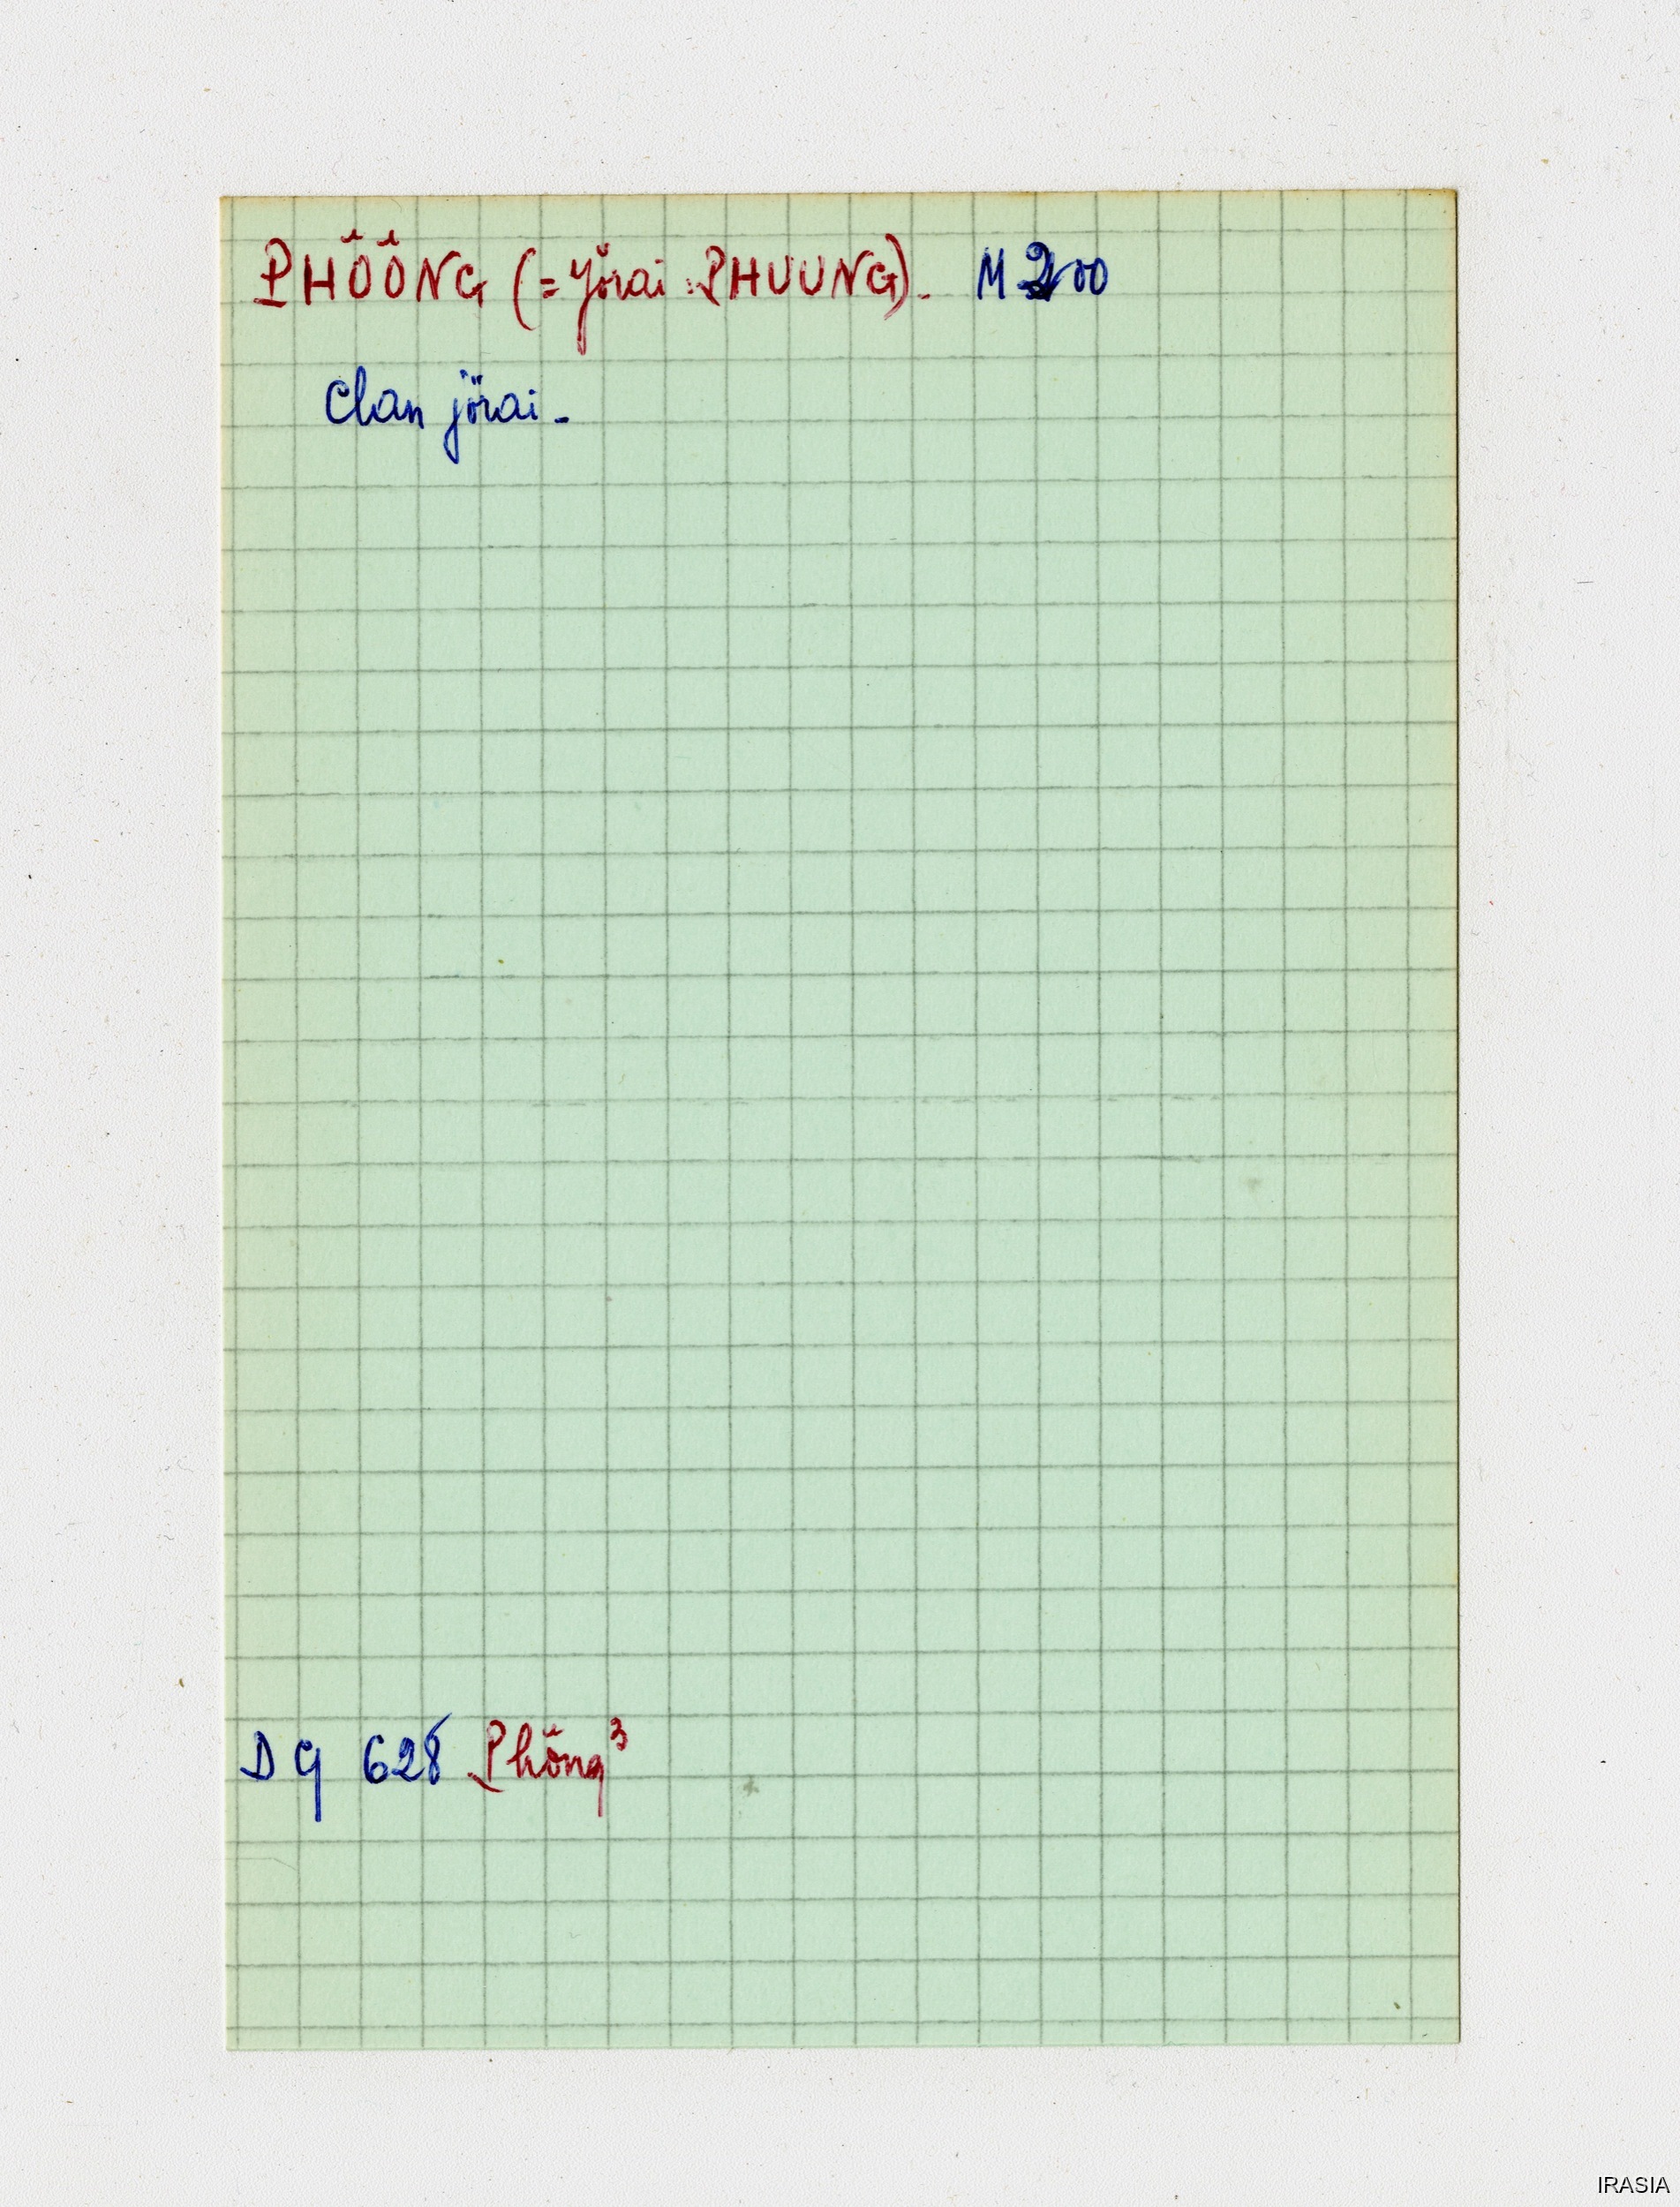 PHÔÔNG (= Jörai : PHUUNG). M 200
Clan jörai.
DG 628 Phông³
IRASIA